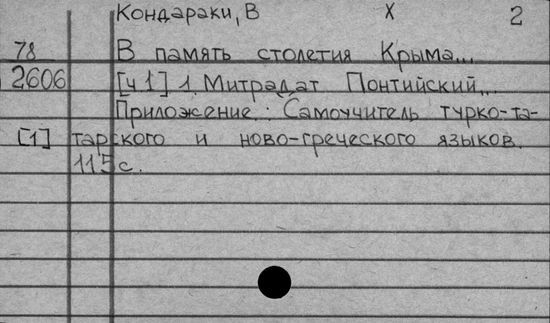 Кондараки, В X 2
78 В память столетия Крыма...
2606 [ч 1] 1. Митрадат Понтийский...
Приложение: Самоучитель турко-та-
[1] тарского и ново-греческого языков.
115 с.